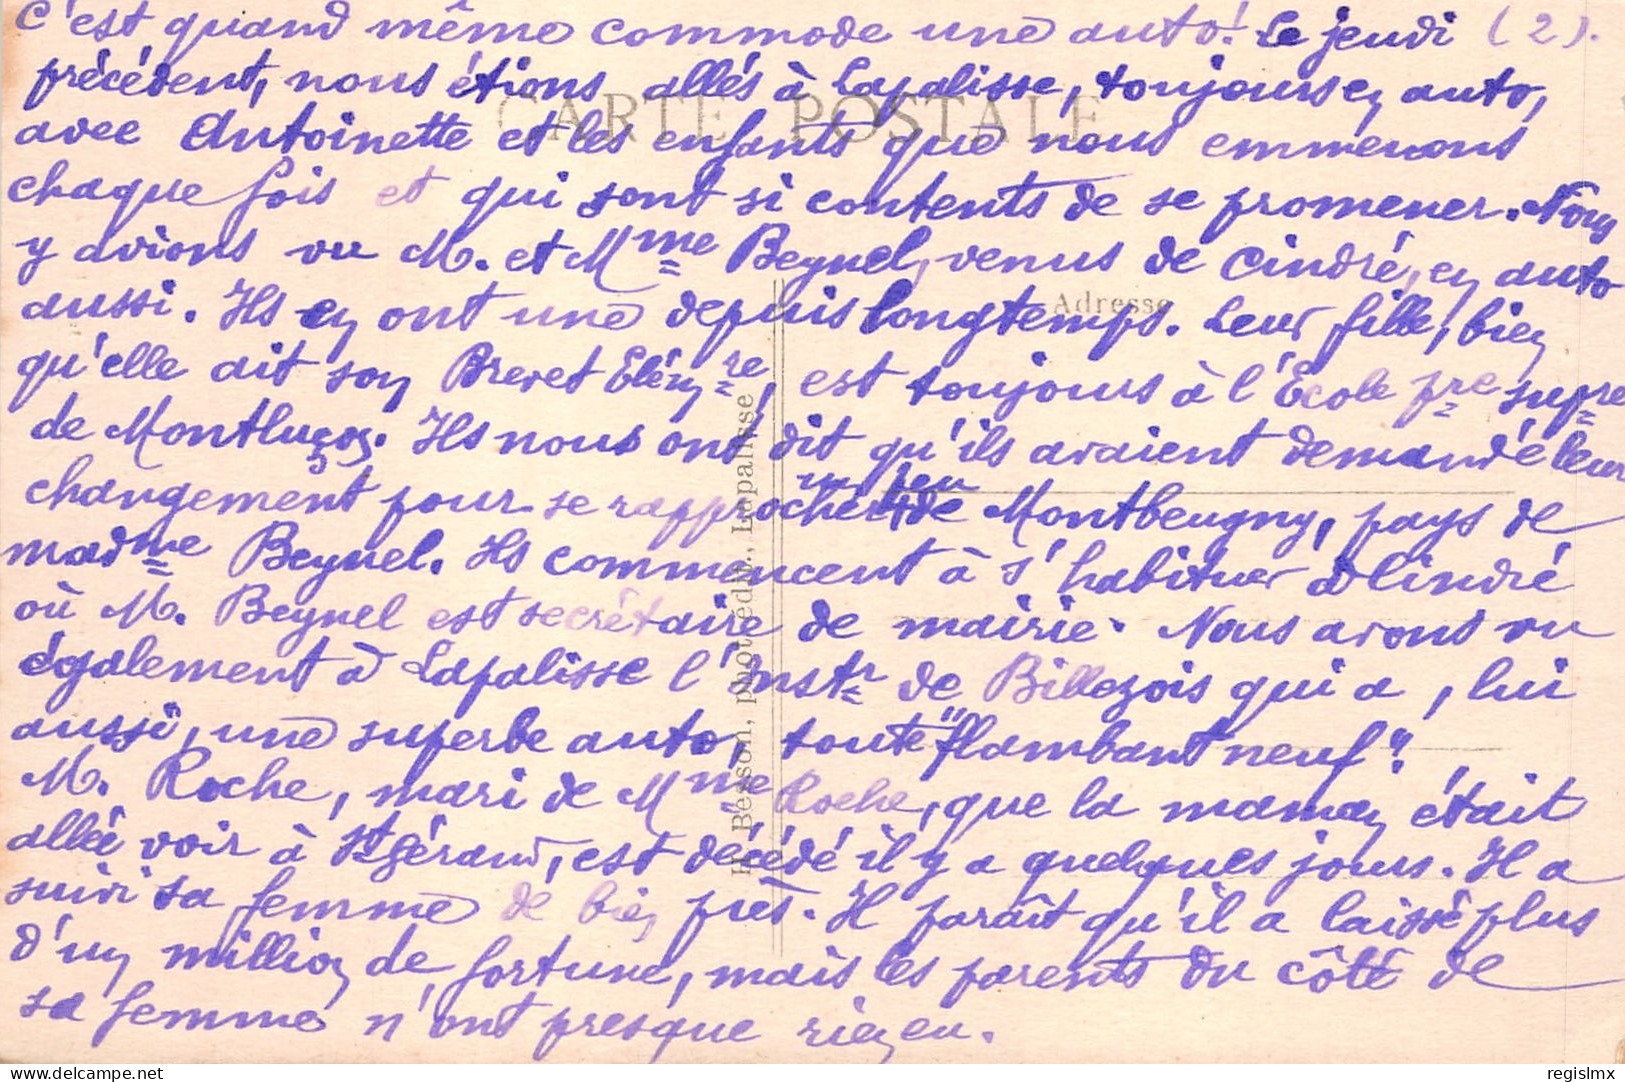 c'est quand même commode une auto! Le jeudi (2).
précédent, nous étions allés à Lapalisse, toujours en auto,
CARTE POSTALE
avec Antoinette et les enfants que nous emmenons
chaque fois et qui sont si contents de se promener. Nous
y avions vu M. et Mme Beynel, venus de Cindré, en auto
Adresse
aussi. Ils en ont une depuis longtemps. Leur fille, bien
qu'elle ait son Brevet Élémre, est toujours à l'École pre supre
de Montluçon. Ils nous ont dit qu'ils avaient demandé leur
changement pour se rapprocher un peu de Montbeugny, pays de
madme Beynel. Ils commencent à s'habituer à Cindré
où M. Beynel est secrétaire de mairie. Nous avons vu
également à Lapalisse l'Instr de Billezois qui a, lui
aussi, une superbe auto, toute "flambant neuf".
M. Roche, mari de Mme Roche, que la maman était
allée voir à St Gérand, est décédé il y a quelques jours. Il a
suivi sa femme de bien près. Il paraît qu'il a laissé plus
d'un million de fortune, mais les parents du côté de
sa femme n'ont presque rien eu.
H. Besson, phot.-édit., Lapalisse
www.delcampe.net
regislmx